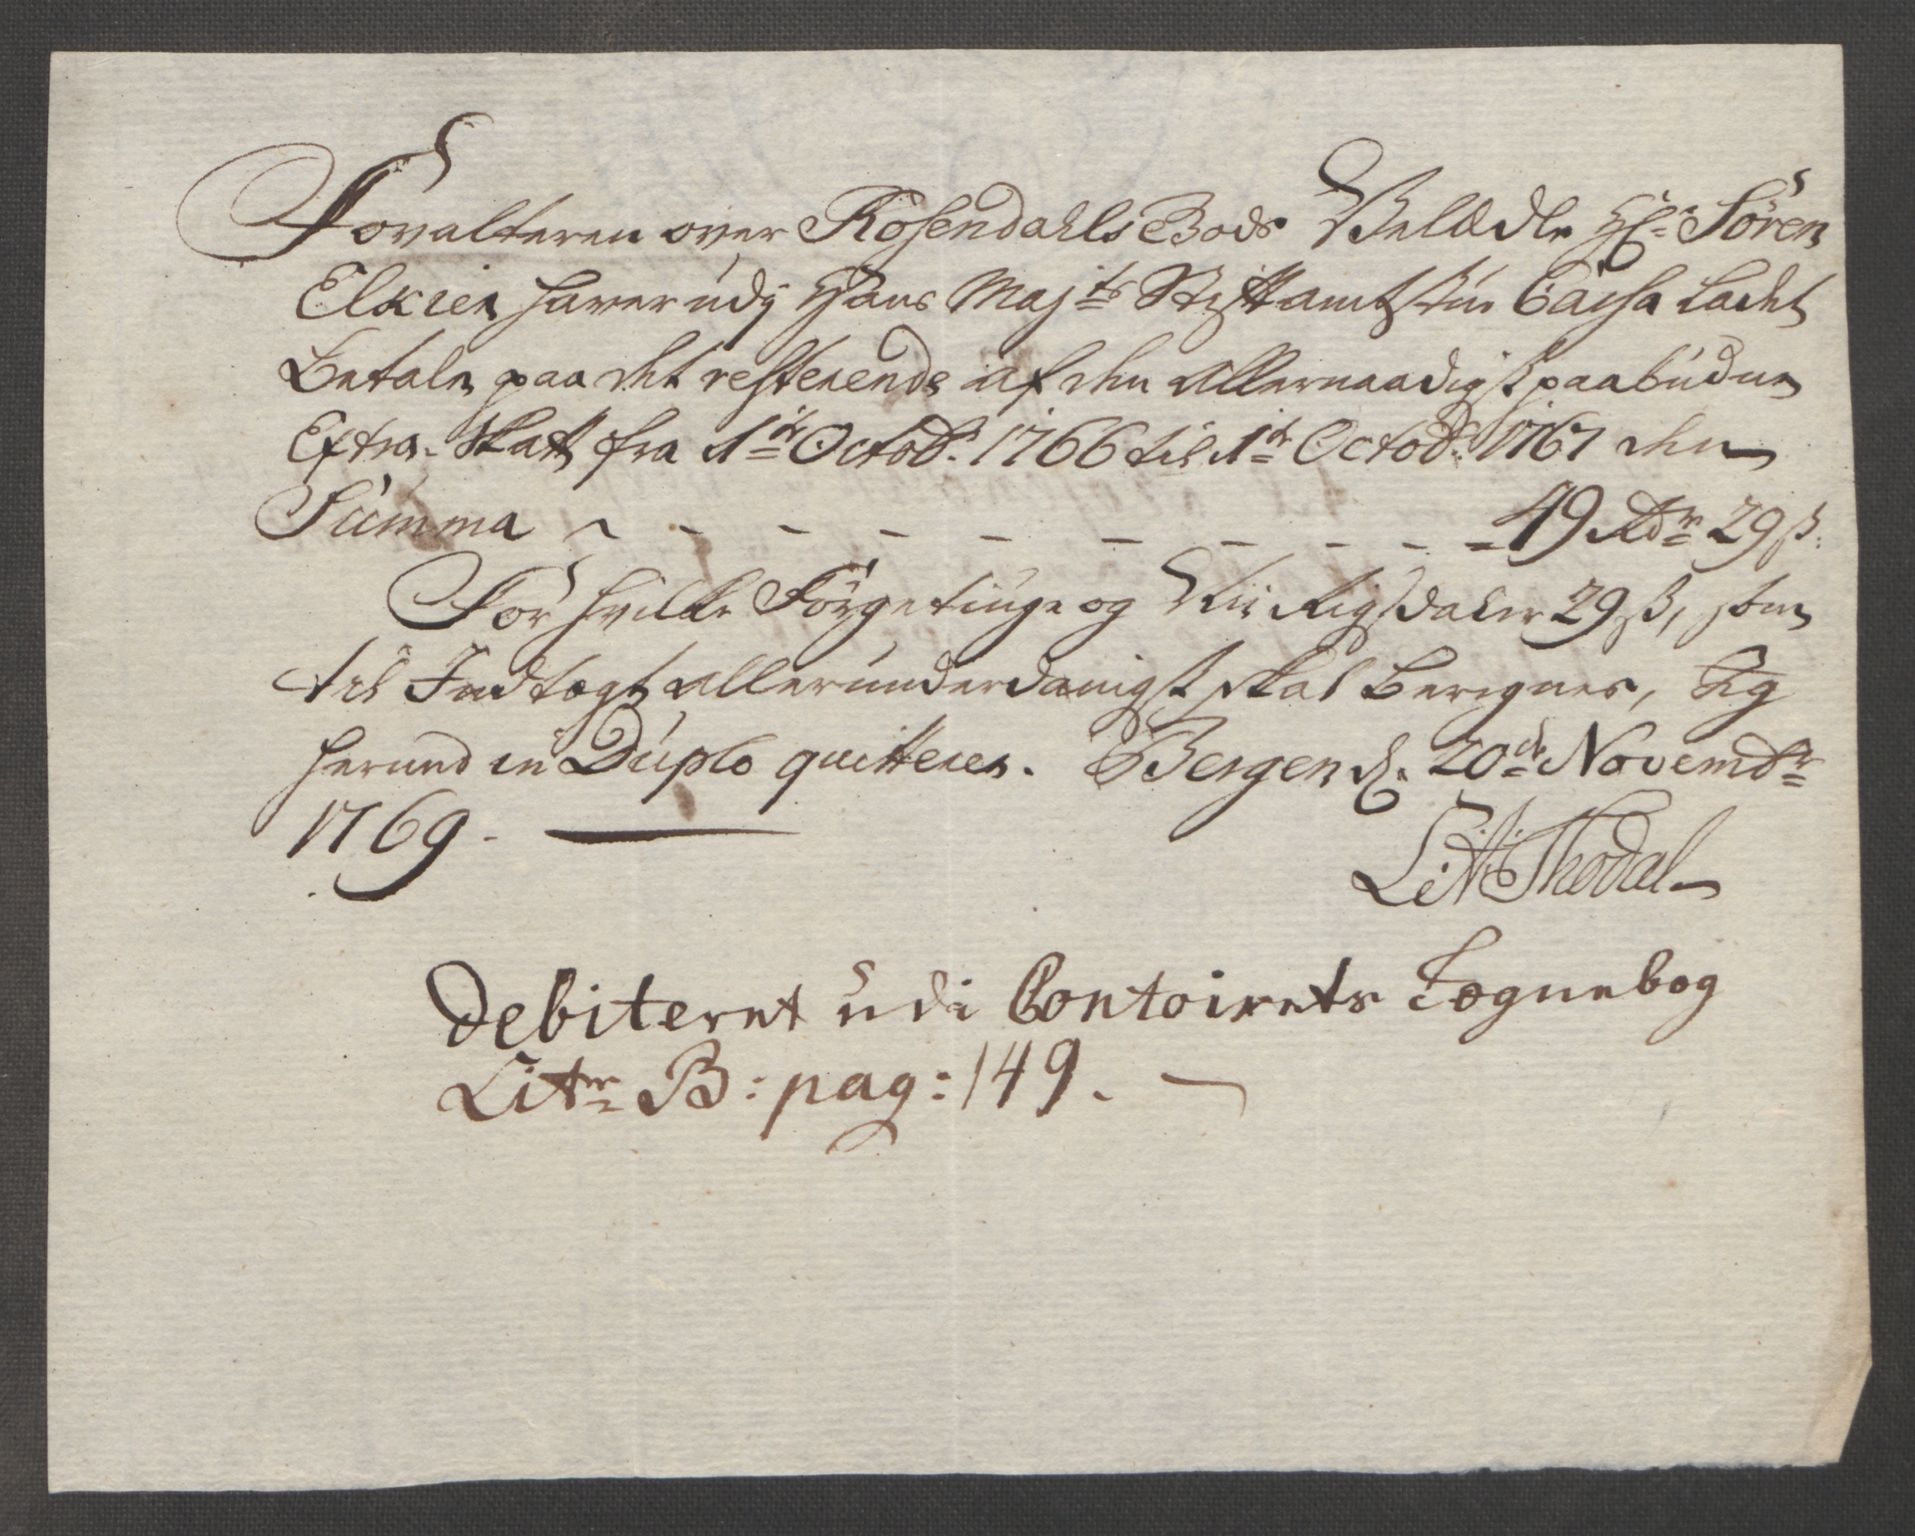 Forvalteren over Rosendahls Gods Velædle Hr. Sören
Elkier haver udj Hans Majts Stiftamtstue Cassa ladet
betale paa det resterende af den allernaadigst paabudne
Extra-Skatt fra 1te Octobr. 1766 til 1te Octobr. 1767 den
Summa - - - - - - - - - 49 Rdr 29 ß.
For hvilke Förgetiuge og Nii Rigsdaler 29 ß, som
til Indtægt allerunderdanigst skal beregnes, Jeg
herved in Duplo quitterer. Bergen d. 20de Novembr
1769.
Thodal
Debiteret udi Contoirets Tegnebog
Litr B: pag: 149.